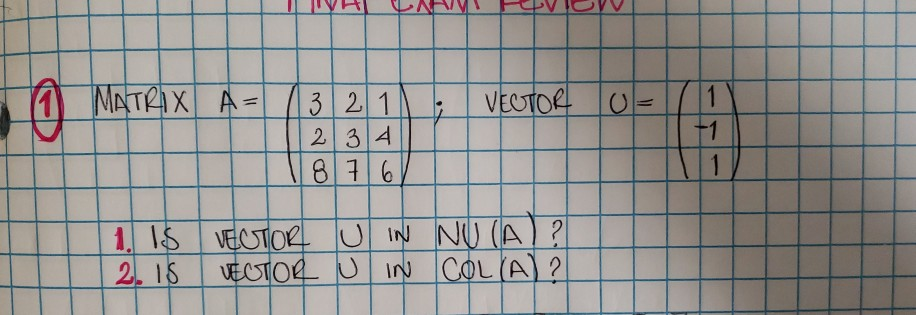 FINAL EXAM REVIEW
1 MATRIX A = (3 2 1) ; VECTOR U = (1)
2 3 4 -1
8 7 6 1
1. IS VECTOR U IN NU(A)?
2. IS VECTOR U IN COL(A)?